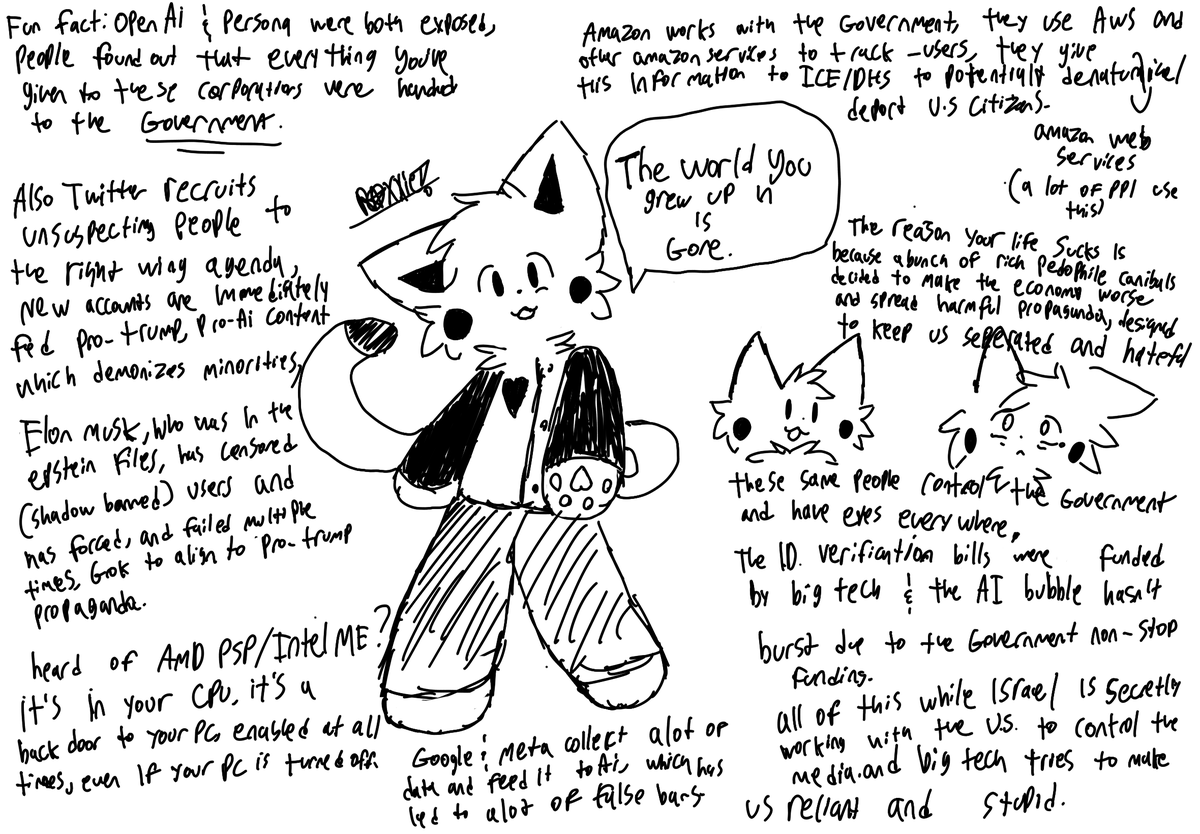 Fun fact: Open Ai & Persona were both exposed,
people found out that everything you've
given to these corporations were handed
to the Government.
Also Twitter recruits
unsuspecting people to
the right wing agenda,
new accounts are immediately
fed pro-trump, pro-Ai content
which demonizes minorities,
Elon musk, who was in the
epstein files, has censored
(shadow banned) users and
has forced, and failed multiple
times, Grok to align to pro-trump
propaganda.
heard of AMD PSP/Intel ME?
it's in your CPU, it's a
back door to your PC, enabled at all
times, even if your PC is turned off.
The world you
grew up in
is
Gone.
Google & meta collect a lot of
data and feed it to Ai, which has
led to a lot of false bans
Amazon works with the Government, they use AWS and
other amazon services to track users, they give
this information to ICE/DHS to potentially
deport U.S Citizens.
amazon web
services
(a lot of ppl use
this)
The reason your life sucks is
because a bunch of rich pedophile canibals
decided to make the economy worse
and spread harmful propaganda, designed
to keep us seperated and hateful
these same people control the Government
and have eyes everywhere,
The I.D. verification bills were funded
by big tech & the AI bubble hasn't
burst due to the Government non-stop
funding.
all of this while Israel is secretly
working with the U.S. to control the
media. and big tech tries to make
us reliant and stupid.